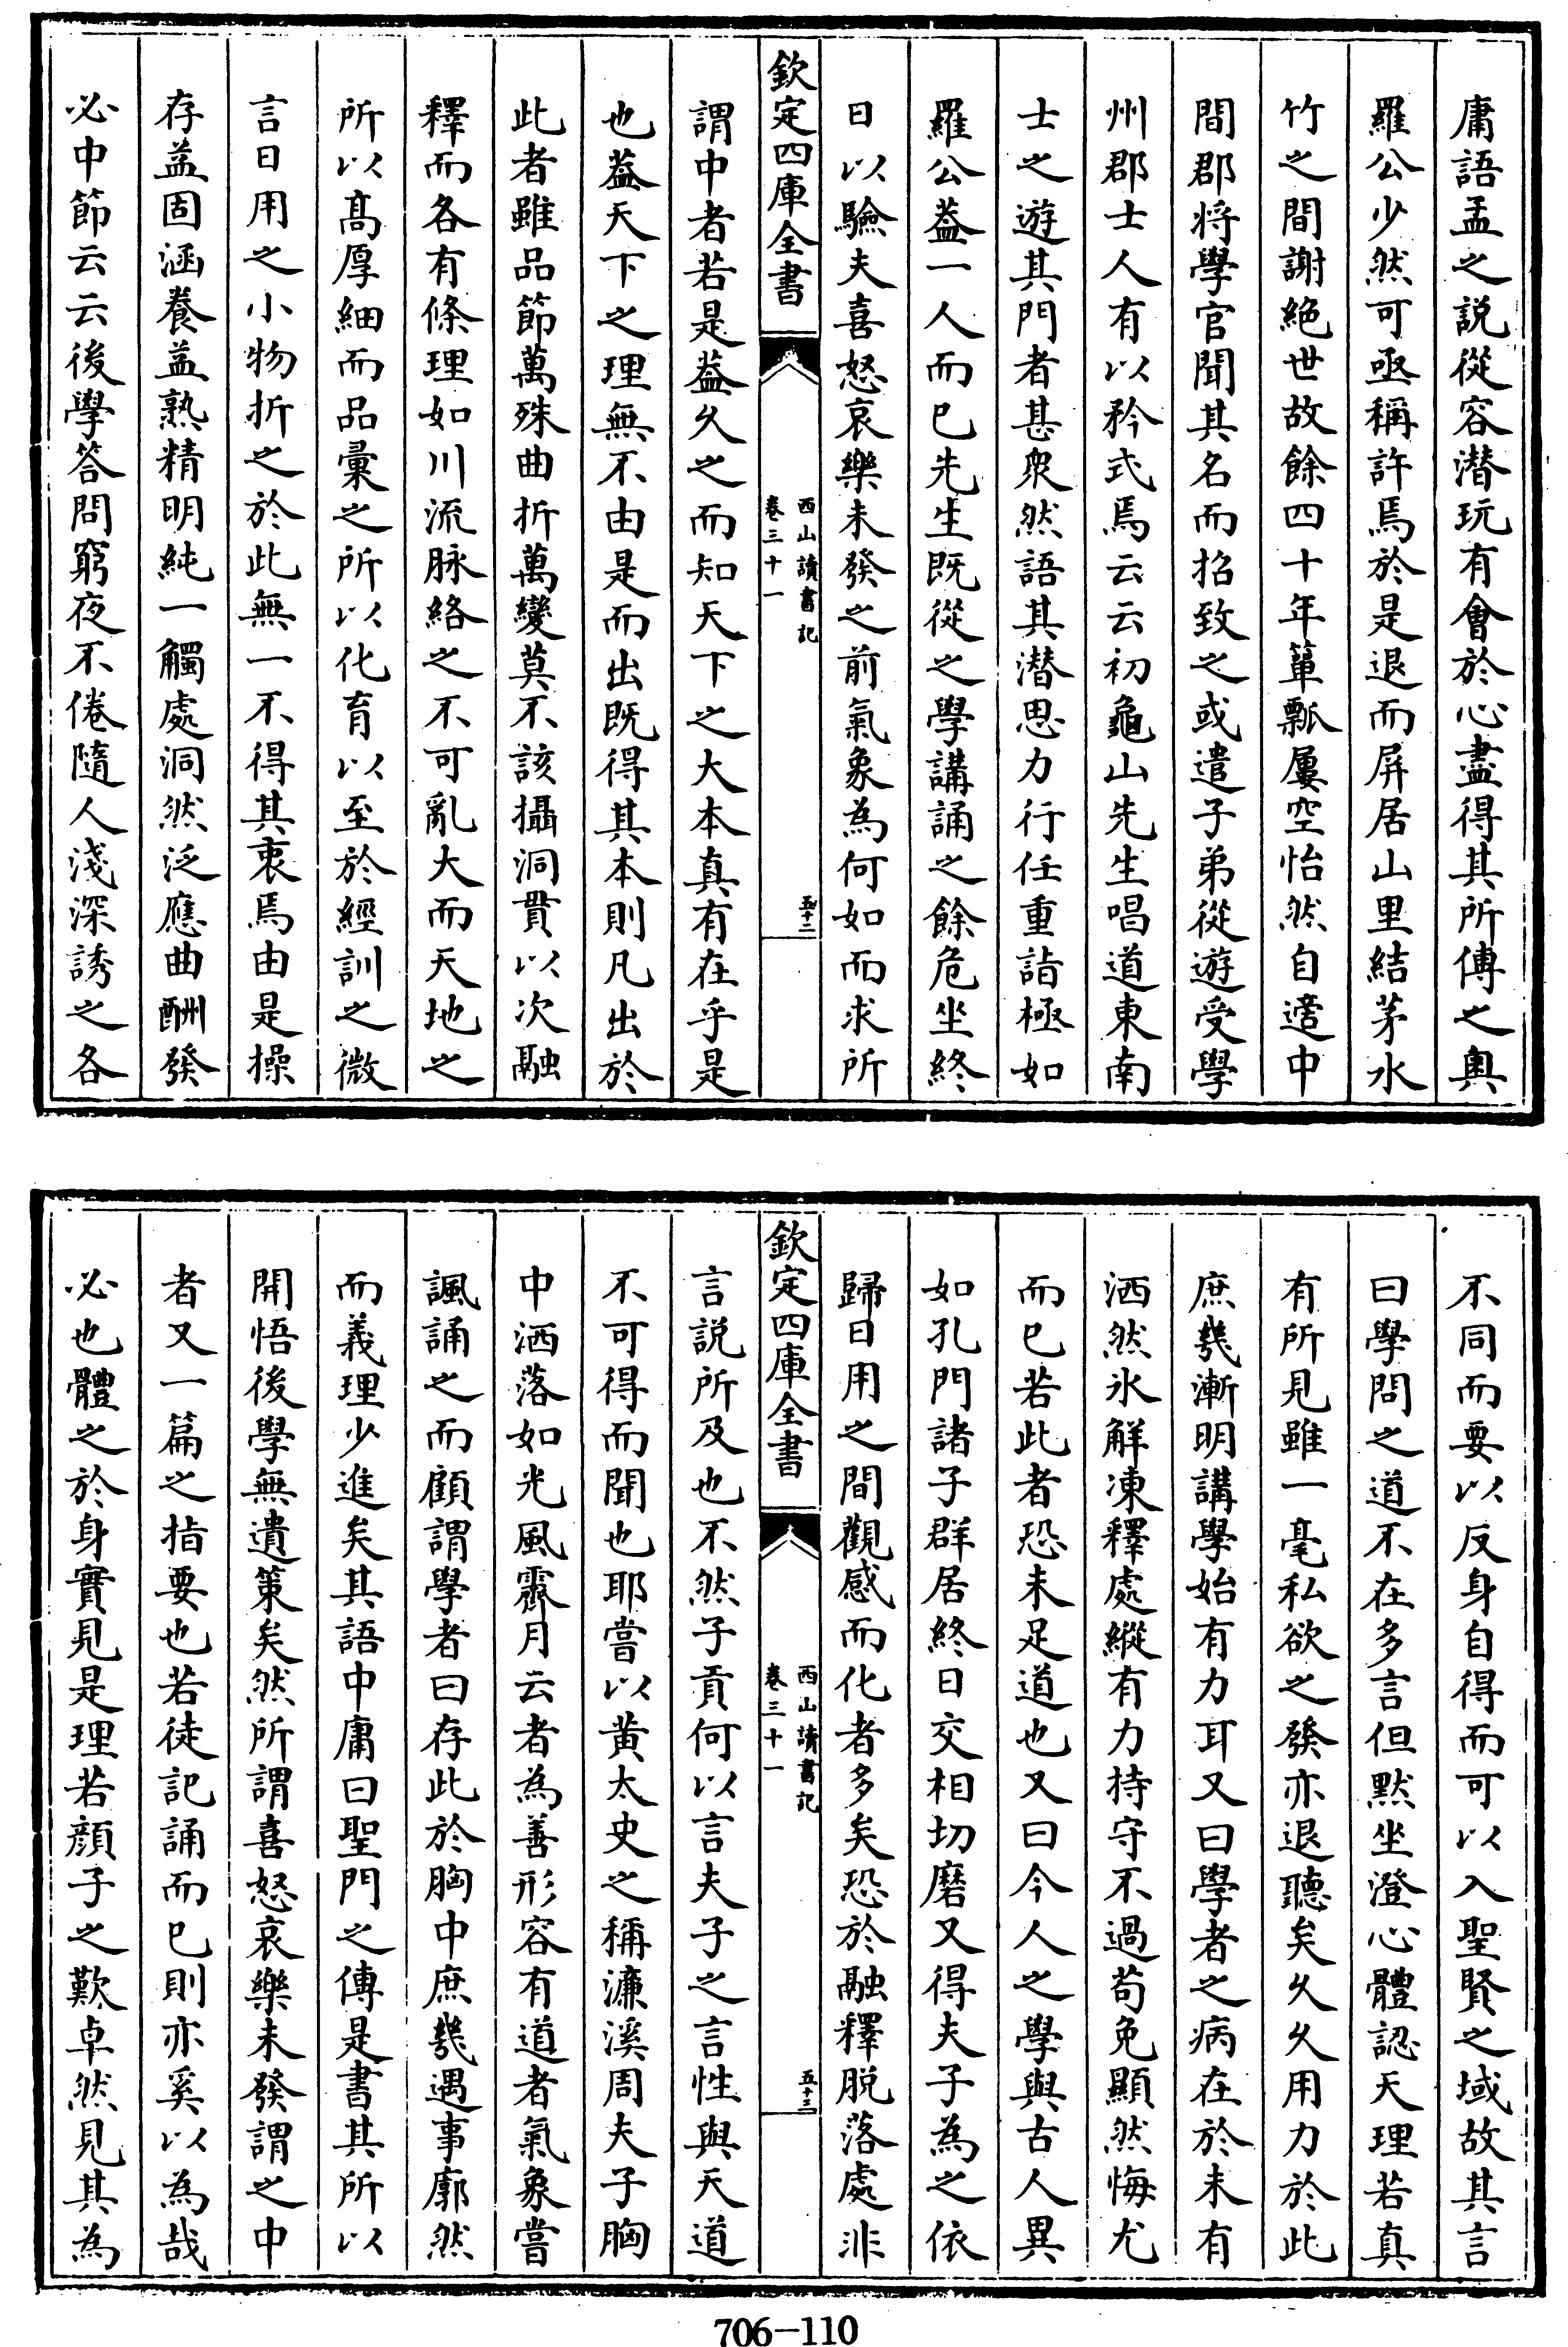 庸語孟之説從容潜玩有會於心盡得其所傳之奥
羅公少然可亟稱許焉於是退而屏居山里結茅水
竹之間謝絶世故餘四十年簞瓢屢空怡然自適中
間郡將學官聞其名而招致之或遣子弟從遊受學
州郡士人有以矜式焉云云初龜山先生唱道東南
士之遊其門者甚衆然語其潜思力行任重詣極如
羅公葢一人而已先生既從之學講誦之餘危坐終
日以驗夫喜怒哀樂未發之前氣象為何如而求所
欽定四庫全書
西山讀書記
卷三十一
五十二
謂中者若是葢久之而知天下之大本真有在乎是
也葢天下之理無不由是而出既得其本則凡出於
此者雖品節萬殊曲折萬變莫不該攝洞貫以次融
釋而各有條理如川流脉絡之不可亂大而天地之
所以髙厚細而品彙之所以化育以至於經訓之微
言日用之小物折之於此無一不得其衷焉由是操
存益固涵養益熟精明純一觸處洞然泛應曲酬發
必中節云云後學答問窮夜不倦隨人淺深誘之各
不同而要以反身自得而可以入聖賢之域故其言
曰學問之道不在多言但默坐澄心體認天理若真
有所見雖一毫私欲之發亦退聽矣久久用力於此
庶幾漸明講學始有力耳又曰學者之病在於未有
洒然氷解凍釋處縱有力持守不過苟免顯然悔尤
而已若此者恐未足道也又曰今人之學與古人異
如孔門諸子群居終日交相切磨又得夫子為之依
歸日用之間觀感而化者多矣恐於融釋脱落處非
欽定四庫全書
西山讀書記
卷三十一
五十三
言説所及也不然子貢何以言夫子之言性與天道
不可得而聞也耶嘗以黄太史之稱濂溪周夫子胸
中洒落如光風霽月云者為善形容有道者氣象嘗
諷誦之而顧謂學者曰存此於胸中庶幾遇事廓然
而義理少進矣其語中庸曰聖門之傳是書其所以
開悟後學無遺策矣然所謂喜怒哀樂未發謂之中
者又一篇之指要也若徒記誦而已則亦奚以為哉
必也體之於身實見是理若顔子之歎卓然見其為
706-110